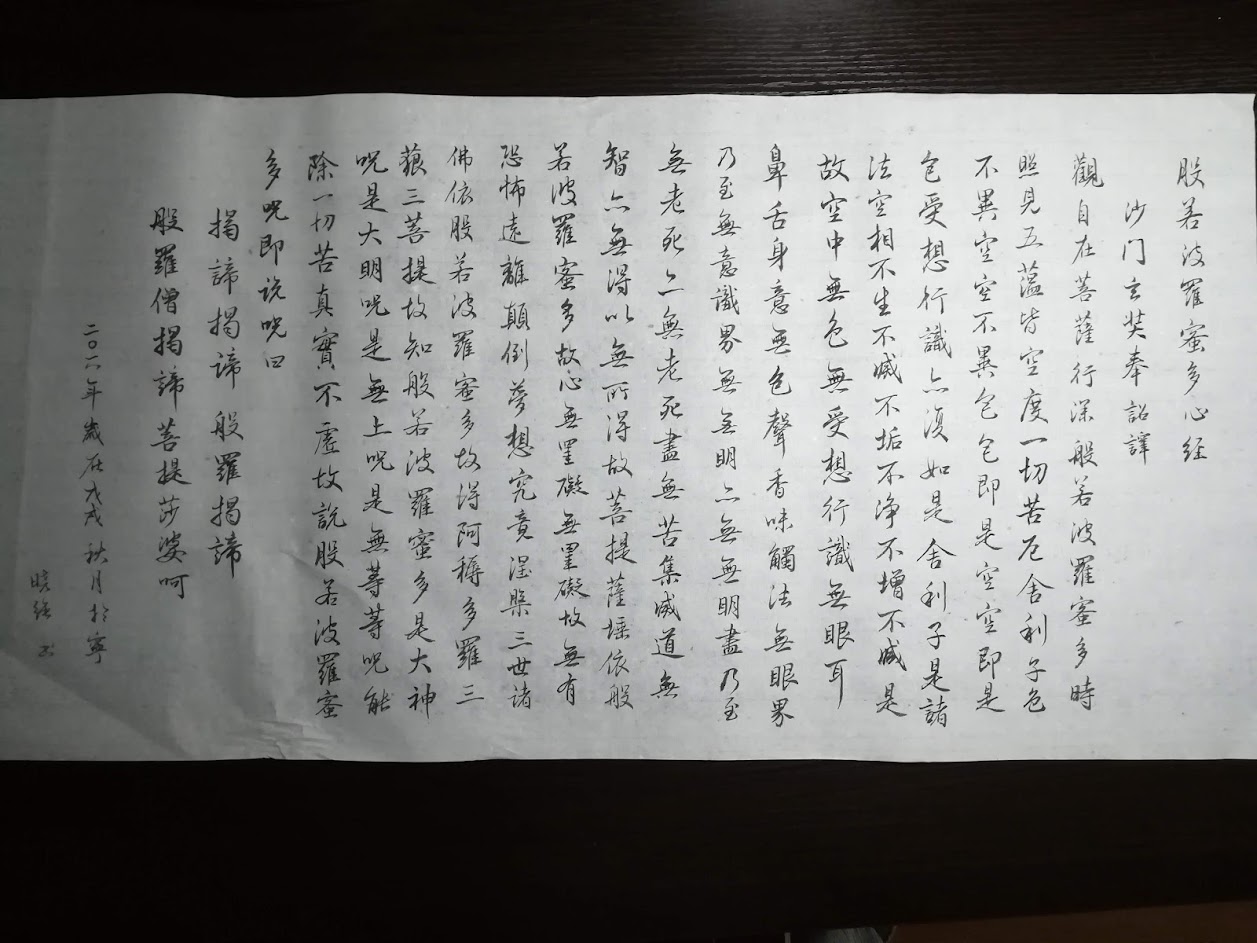 般若波羅蜜多心经
沙门玄奘奉詔譯
觀自在菩薩行深般若波羅蜜多時
照見五蕴皆空度一切苦厄舍利子色
不異空空不異色色即是空空即是
色受想行識亦復如是舍利子是諸
法空相不生不滅不垢不净不增不減是
故空中無色無受想行識無眼耳
鼻舌身意無色聲香味觸法無眼界
乃至無意識界無無明亦無無明盡乃至
無老死亦無老死盡無苦集滅道無
智亦無得以無所得故菩提薩埵依般
若波羅蜜多故心無罣礙無罣礙故無有
恐怖遠離顛倒夢想究竟涅槃三世諸
佛依般若波羅蜜多故得阿耨多羅三
藐三菩提故知般若波羅蜜多是大神
呪是大明呪是無上呪是無等等呪能
除一切苦真實不虛故説般若波羅蜜
多呪即说呪曰
揭諦揭諦般羅揭諦
般羅僧揭諦菩提莎婆呵
二〇一八年歲在戊戌秋月於寧